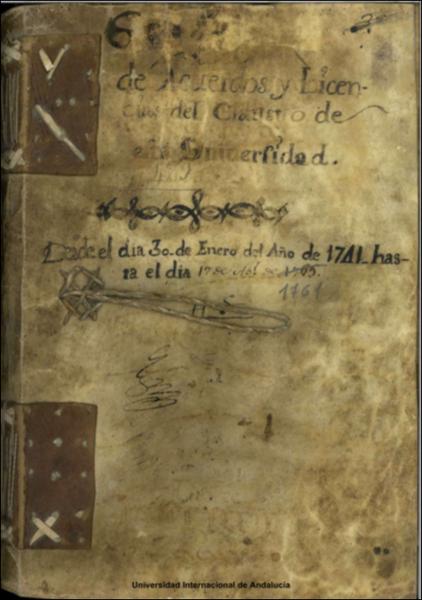 de Acuerdos y Licen-
cias del Claustro de
esta Universidad.
Desde el dia 30. de Enero del Año de 1741. has-
ta el dia 17 de de 1765.
1761
Universidad Internacional de Andalucía